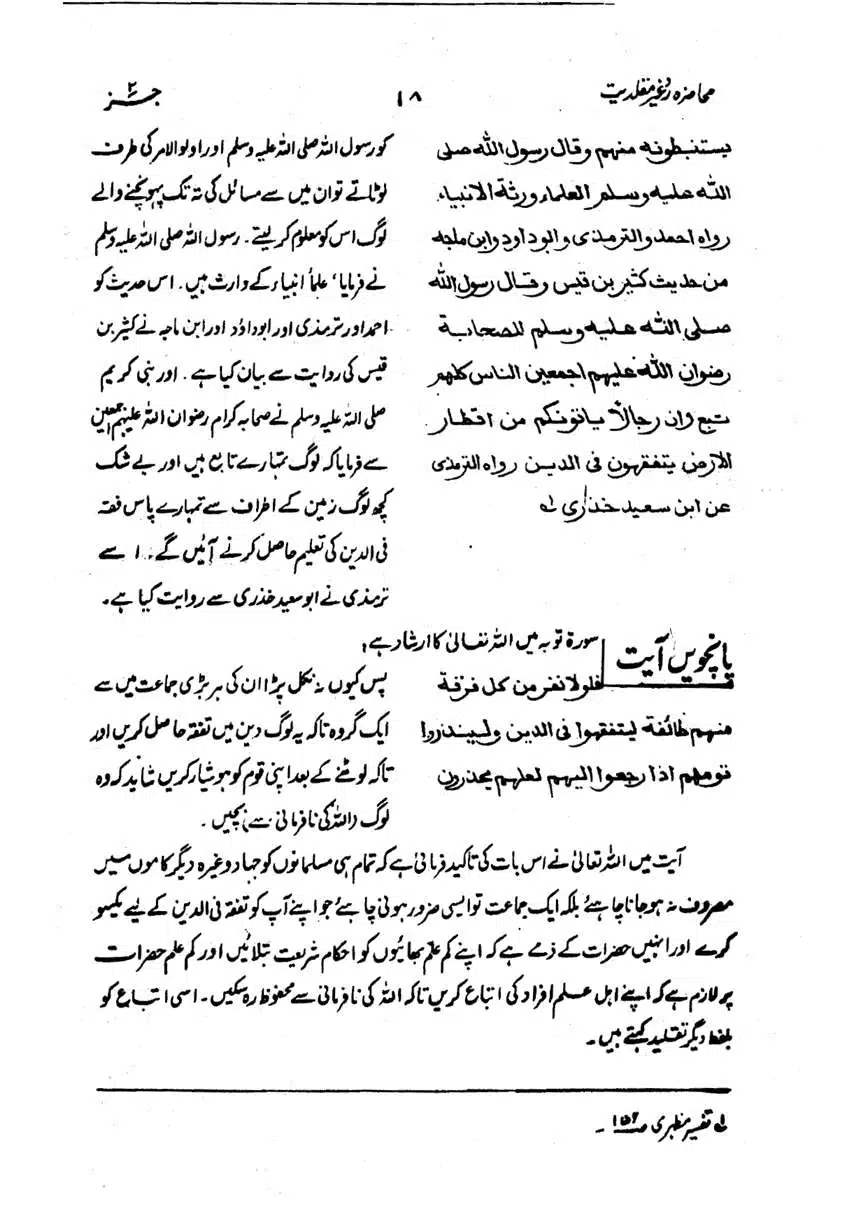 محاضرہ ردِّ غیر مقلدیت
۱۸
جـــز ۲
یستنبطونه منهم وقال رسول الله صلی
الله علیه وسلم العلماء ورثة الانبیاء
رواه احمد والترمذی وابوداود وابن ماجه
من حدیث کثیر بن قیس وقال رسول الله
صلی الله علیه وسلم للصحابة
رضوان الله علیهم اجمعین الناس کلهم
تبع وان رجالاً یاتونکم من اقطار
الارض یتفقهون فی الدین رواه الترمذی
عن ابن سعید خذاری لہ
کو رسول اللہ صلی اللہ علیہ وسلم اور اولو الامر کی طرف
لوٹاتے تو ان میں سے مسائل کی تہ تک پہونچنے والے
لوگ اس کو معلوم کر لیتے۔ رسول اللہ صلی اللہ علیہ وسلم
نے فرمایا، علماء انبیاء کے وارث ہیں۔ اس حدیث کو
احمد اور ترمذی اور ابوداؤد اور ابن ماجہ نے کثیر بن
قیس کی روایت سے بیان کیا ہے۔ اور نبی کریم
صلی اللہ علیہ وسلم نے صحابہ کرام رضوان اللہ علیہم اجمعین
سے فرمایا کہ لوگ تمہارے تابع ہیں اور بے شک
کچھ لوگ زمین کے اطراف سے تمہارے پاس فقہ
فی الدین کی تعلیم حاصل کرنے آئیں گے۔ اسے
ترمذی نے ابوسعید خذری سے روایت کیا ہے۔
پانچویں آیت
سورۃ توبہ میں اللہ تعالیٰ کا ارشاد ہے:
فلولا نفر من کل فرقة
منهم طائفة لیتفقهوا فی الدین ولینذروا
قومهم اذا رجعوا الیهم لعلهم یحذرون
پس کیوں نہ نکل پڑا ان کی ہر بڑی جماعت میں سے
ایک گروہ تاکہ یہ لوگ دین میں تفقہ حاصل کریں اور
تاکہ لوٹنے کے بعد اپنی قوم کو ہوشیار کریں شاید کہ وہ
لوگ (اللہ کی نافرمانی سے) بچیں۔
آیت میں اللہ تعالیٰ نے اس بات کی تاکید فرمائی ہے کہ تمام ہی مسلمانوں کو جہاد وغیرہ دیگر کاموں میں
مصروف نہ ہو جانا چاہئے بلکہ ایک جماعت تو ایسی ضرور ہونی چاہئے جو اپنے آپ کو تفقہ فی الدین کے لیے یکسو
کرے اور انہیں حضرات کے ذمے ہے کہ اپنے کم علم بھائیوں کو احکام شریعت بتلائیں اور کم علم حضرات
پر لازم ہے کہ اپنے اہل علم افراد کی اتباع کریں تاکہ اللہ کی نافرمانی سے محفوظ رہ سکیں۔ اسی اتباع کو
بلفظ دیگر تقلید کہتے ہیں۔
لہ تفسیر مظہری ص۱۵۲۔